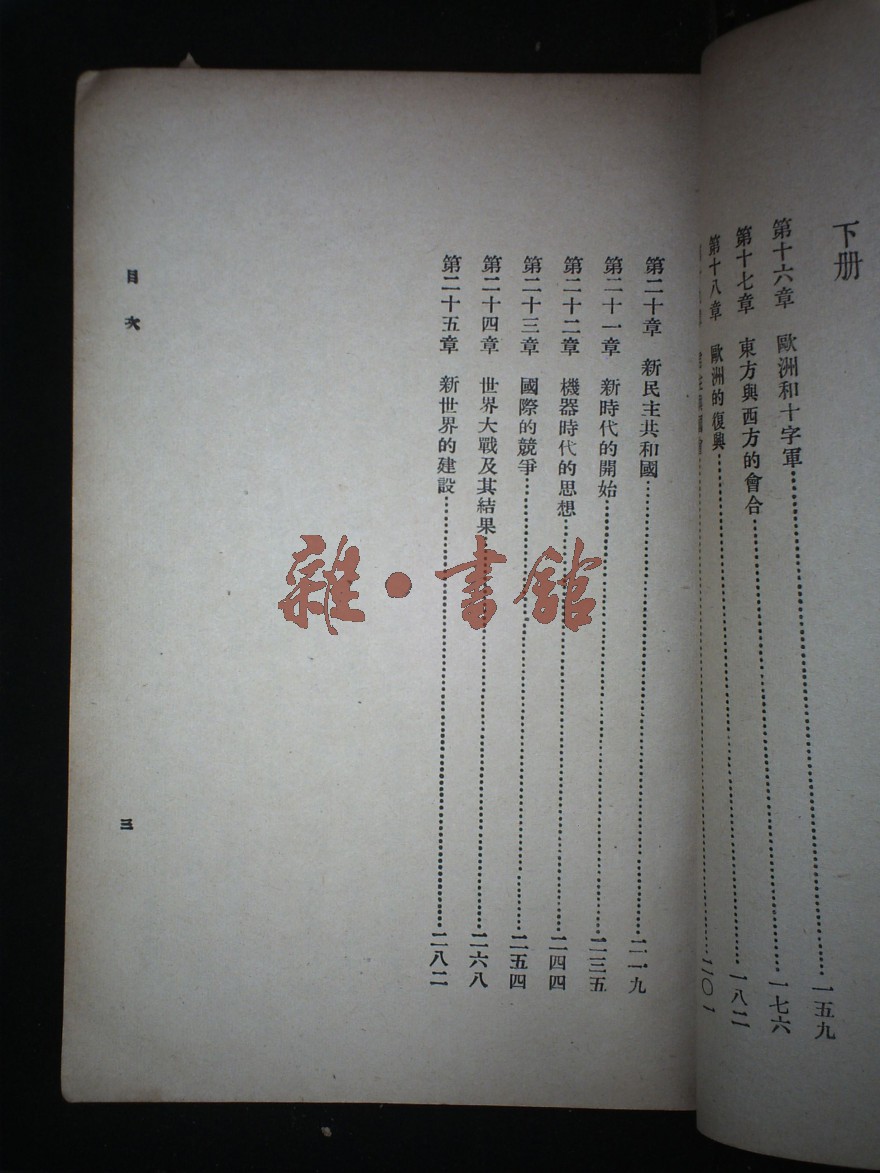 下册
第十六章 歐洲和十字軍……一五九
第十七章 東方與西方的會合……一七六
第十八章 歐洲的復興……一八二
……二〇一
第二十章 新民主共和國……二一九
第二十一章 新時代的開始……二三五
第二十二章 機器時代的思想……二四四
第二十三章 國際的競爭……二五四
第二十四章 世界大戰及其結果……二六八
第二十五章 新世界的建設……二八二
目次
三
雜·書館